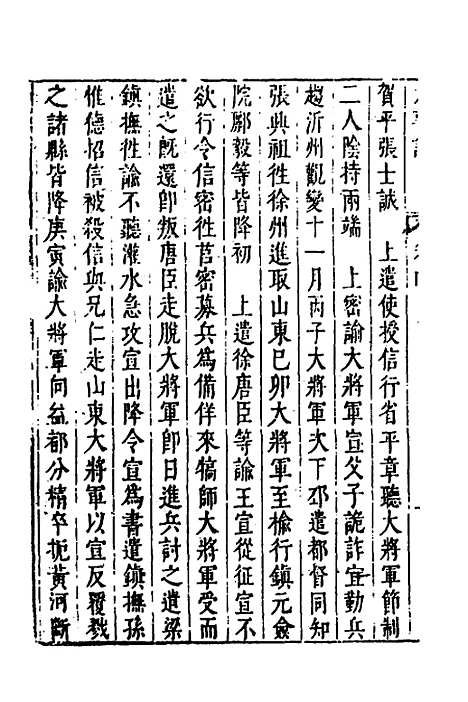 賀平張士誠　上遣使授信行省平章聽大將軍節制
二人陰持兩端　上密諭大將軍宣父子詭詐宜勤兵
趨沂州觀變十一月丙子大將軍次下邳遣都督同知
張興祖徃徐州進取山東巳卯大將軍至榆行鎮元僉
院鄏毅等皆降初　上遣徐唐臣等諭王宣從征宣不
欲行令信密徃莒密募兵爲備佯來犒師大將軍受而
遣之旣還卽叛唐臣走脫大將軍卽日進兵討之遣梁
鎮撫徃諭不聽灌水急攻宣出降令宣爲書遣鎮撫孫
惟德招信被殺信與兄仁走山東大將軍以宣反覆戮
之諸縣皆降庚寅諭大將軍向益都分精卒扼黃河斷